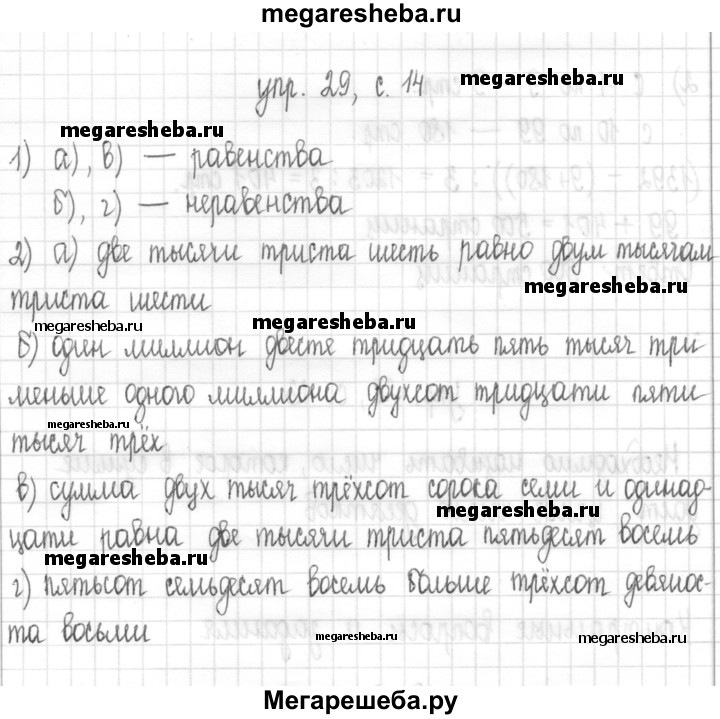 megaresheba.ru
упр. 29, с. 14 megaresheba.ru
megaresheba.ru
1) а), в) — равенства
б), г) — неравенства
2) а) две тысячи триста шесть равно двум тысячам
megaresheba.ru
триста шести
megaresheba.ru megaresheba.ru
б) один миллион двести тридцать пять тысяч три
megaresheba.ru
меньше одного миллиона двухсот тридцати пяти
megaresheba.ru
тысяч трёх
в) сумма двух тысяч трёхсот сорока семи и одинад-
цати равна две тысячи триста пятьдесят восемь
megaresheba.ru megaresheba.ru
г) пятьсот семьдесят восемь больше трёхсот девянос-
та восьми megaresheba.ru megaresheba.ru
Мегарешеба.ру